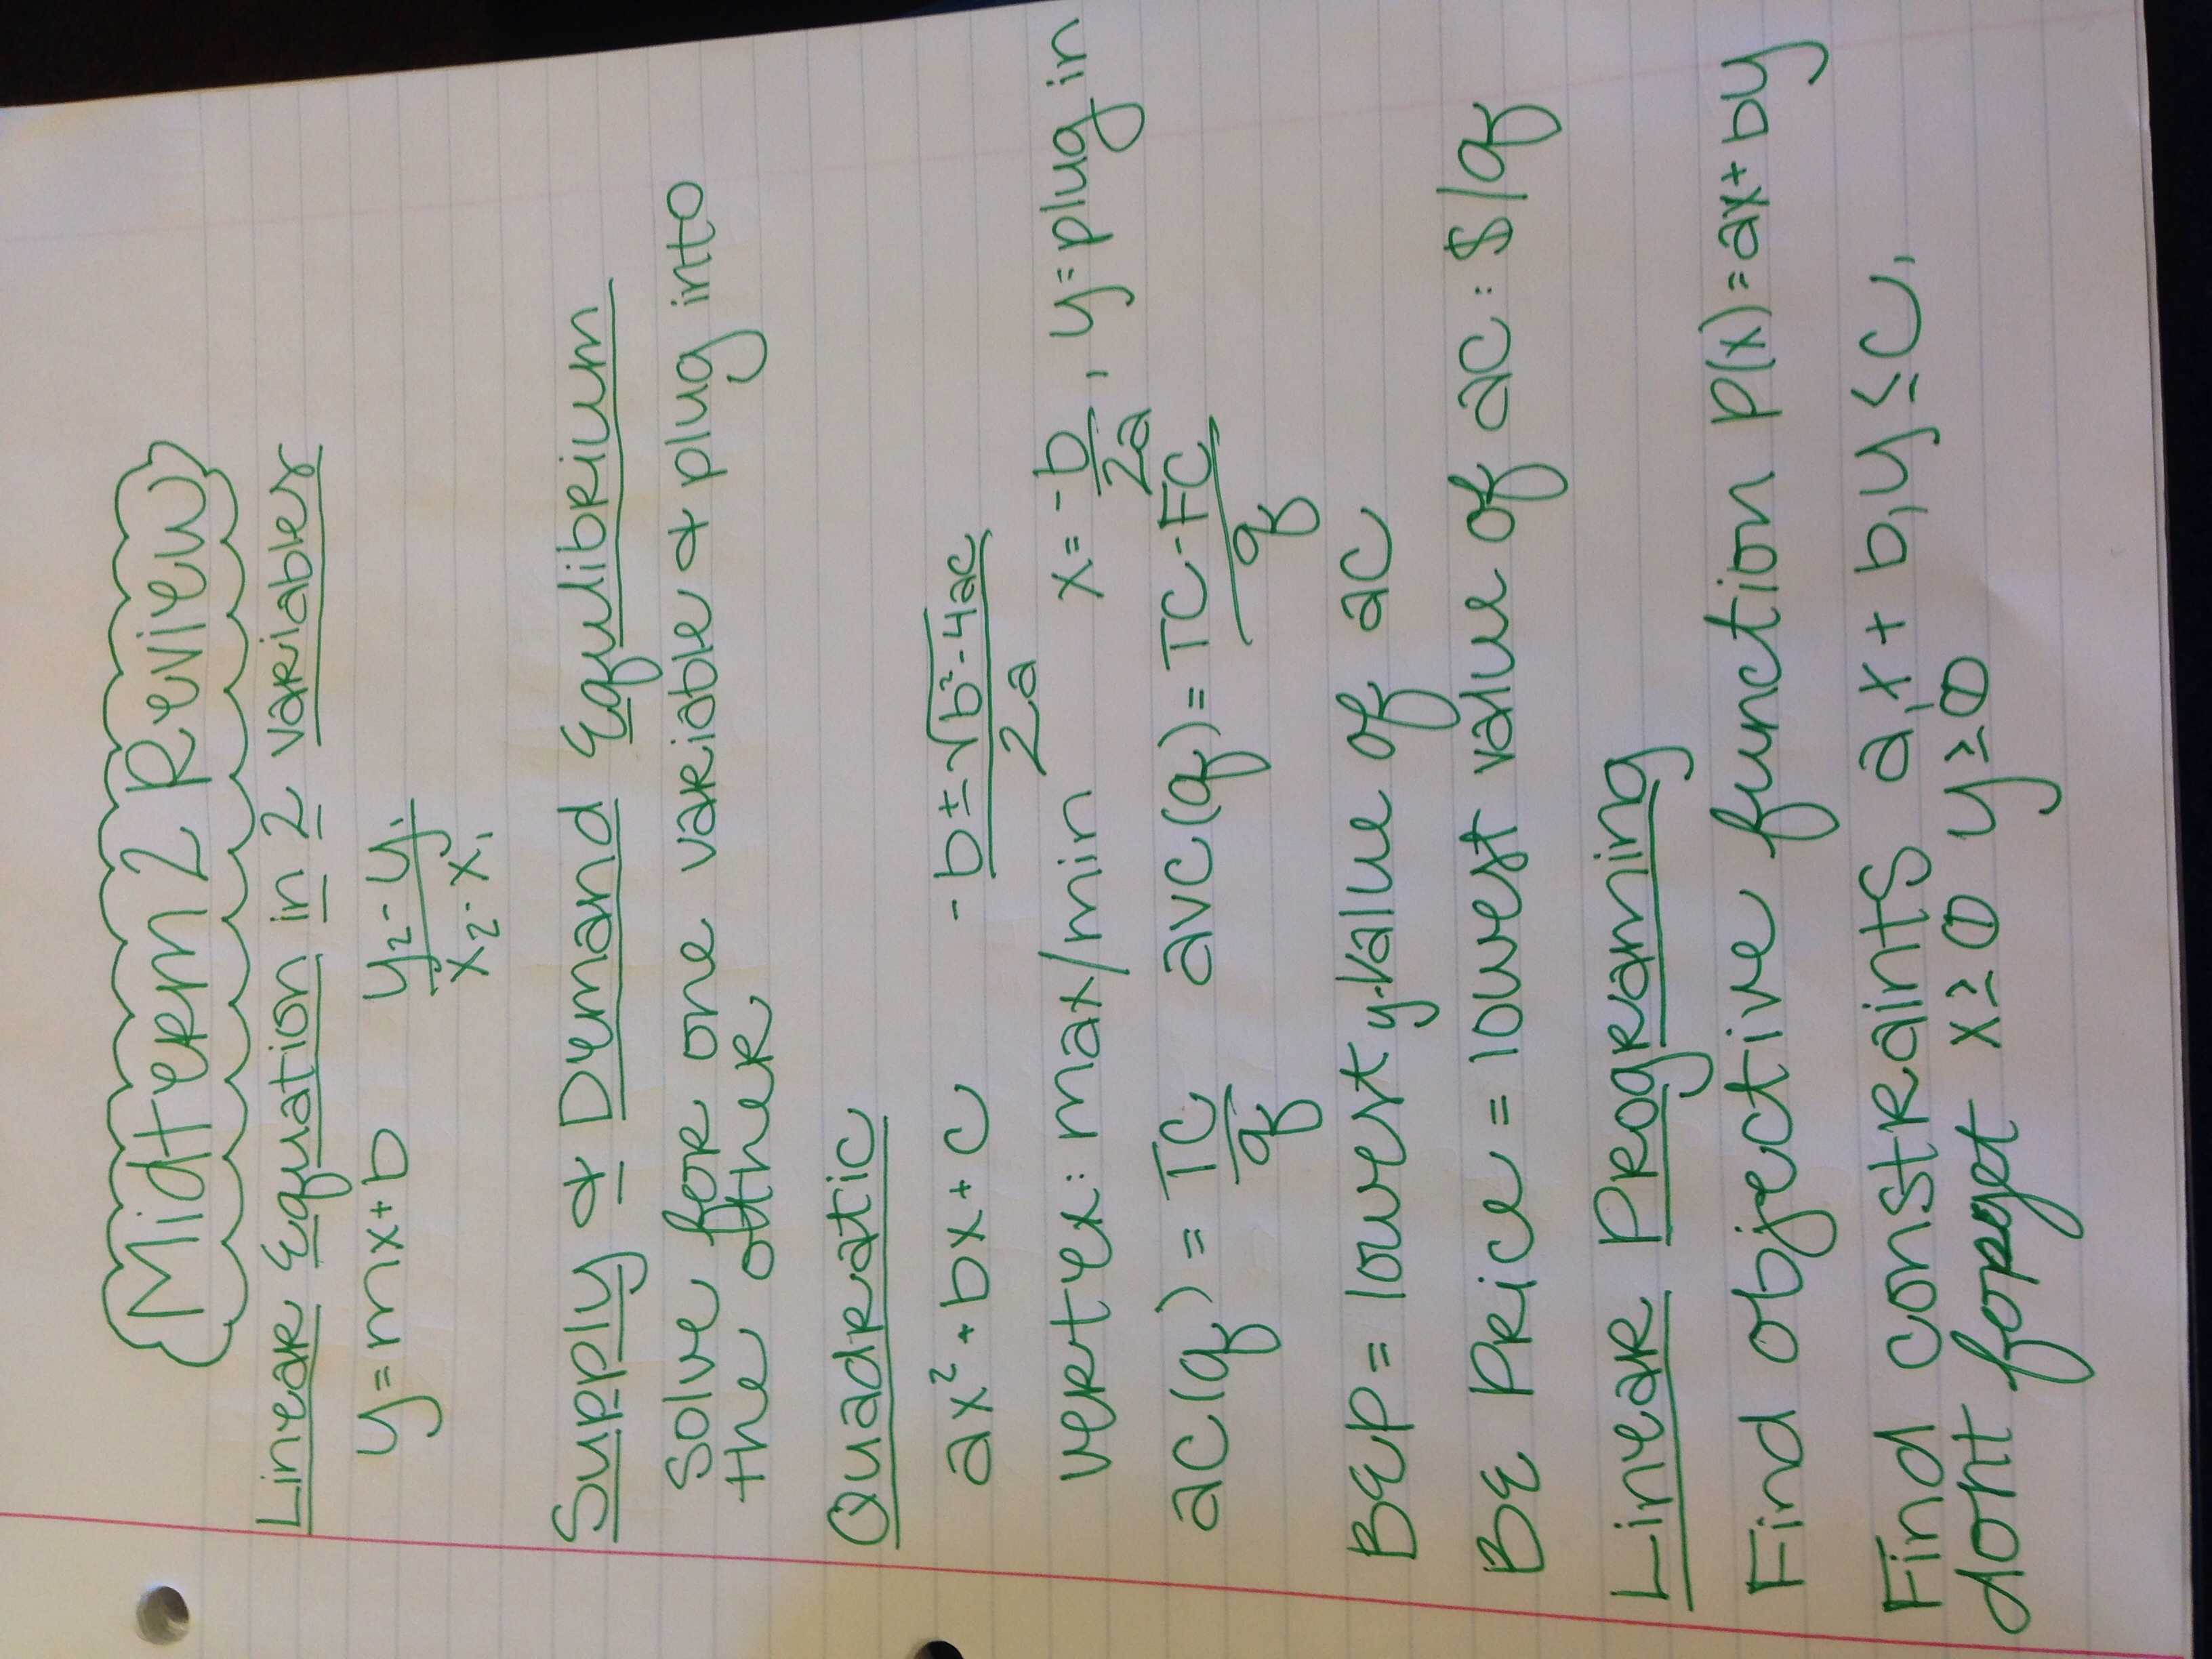 Midterm 2 Review
Linear Equation in 2 variables
y=mx+b   y₂-y₁/x₂-x₁
Supply & Demand Equilibrium
Solve for one variable & plug into
the other
Quadratic
ax²+bx+c   -b±√b²-4ac/2a
vertex: max/min   x=-b/2a, y=plug in
ac(q)=TC/q   avc(q)=TC-FC/q
BEP=lowest y-value of ac
BE Price=lowest value of ac: $/q
Linear Programing
Find objective function p(x)=ax+by
Find constraints a₁x+b₁y≤c₁
dont forget x≥0 y≥0